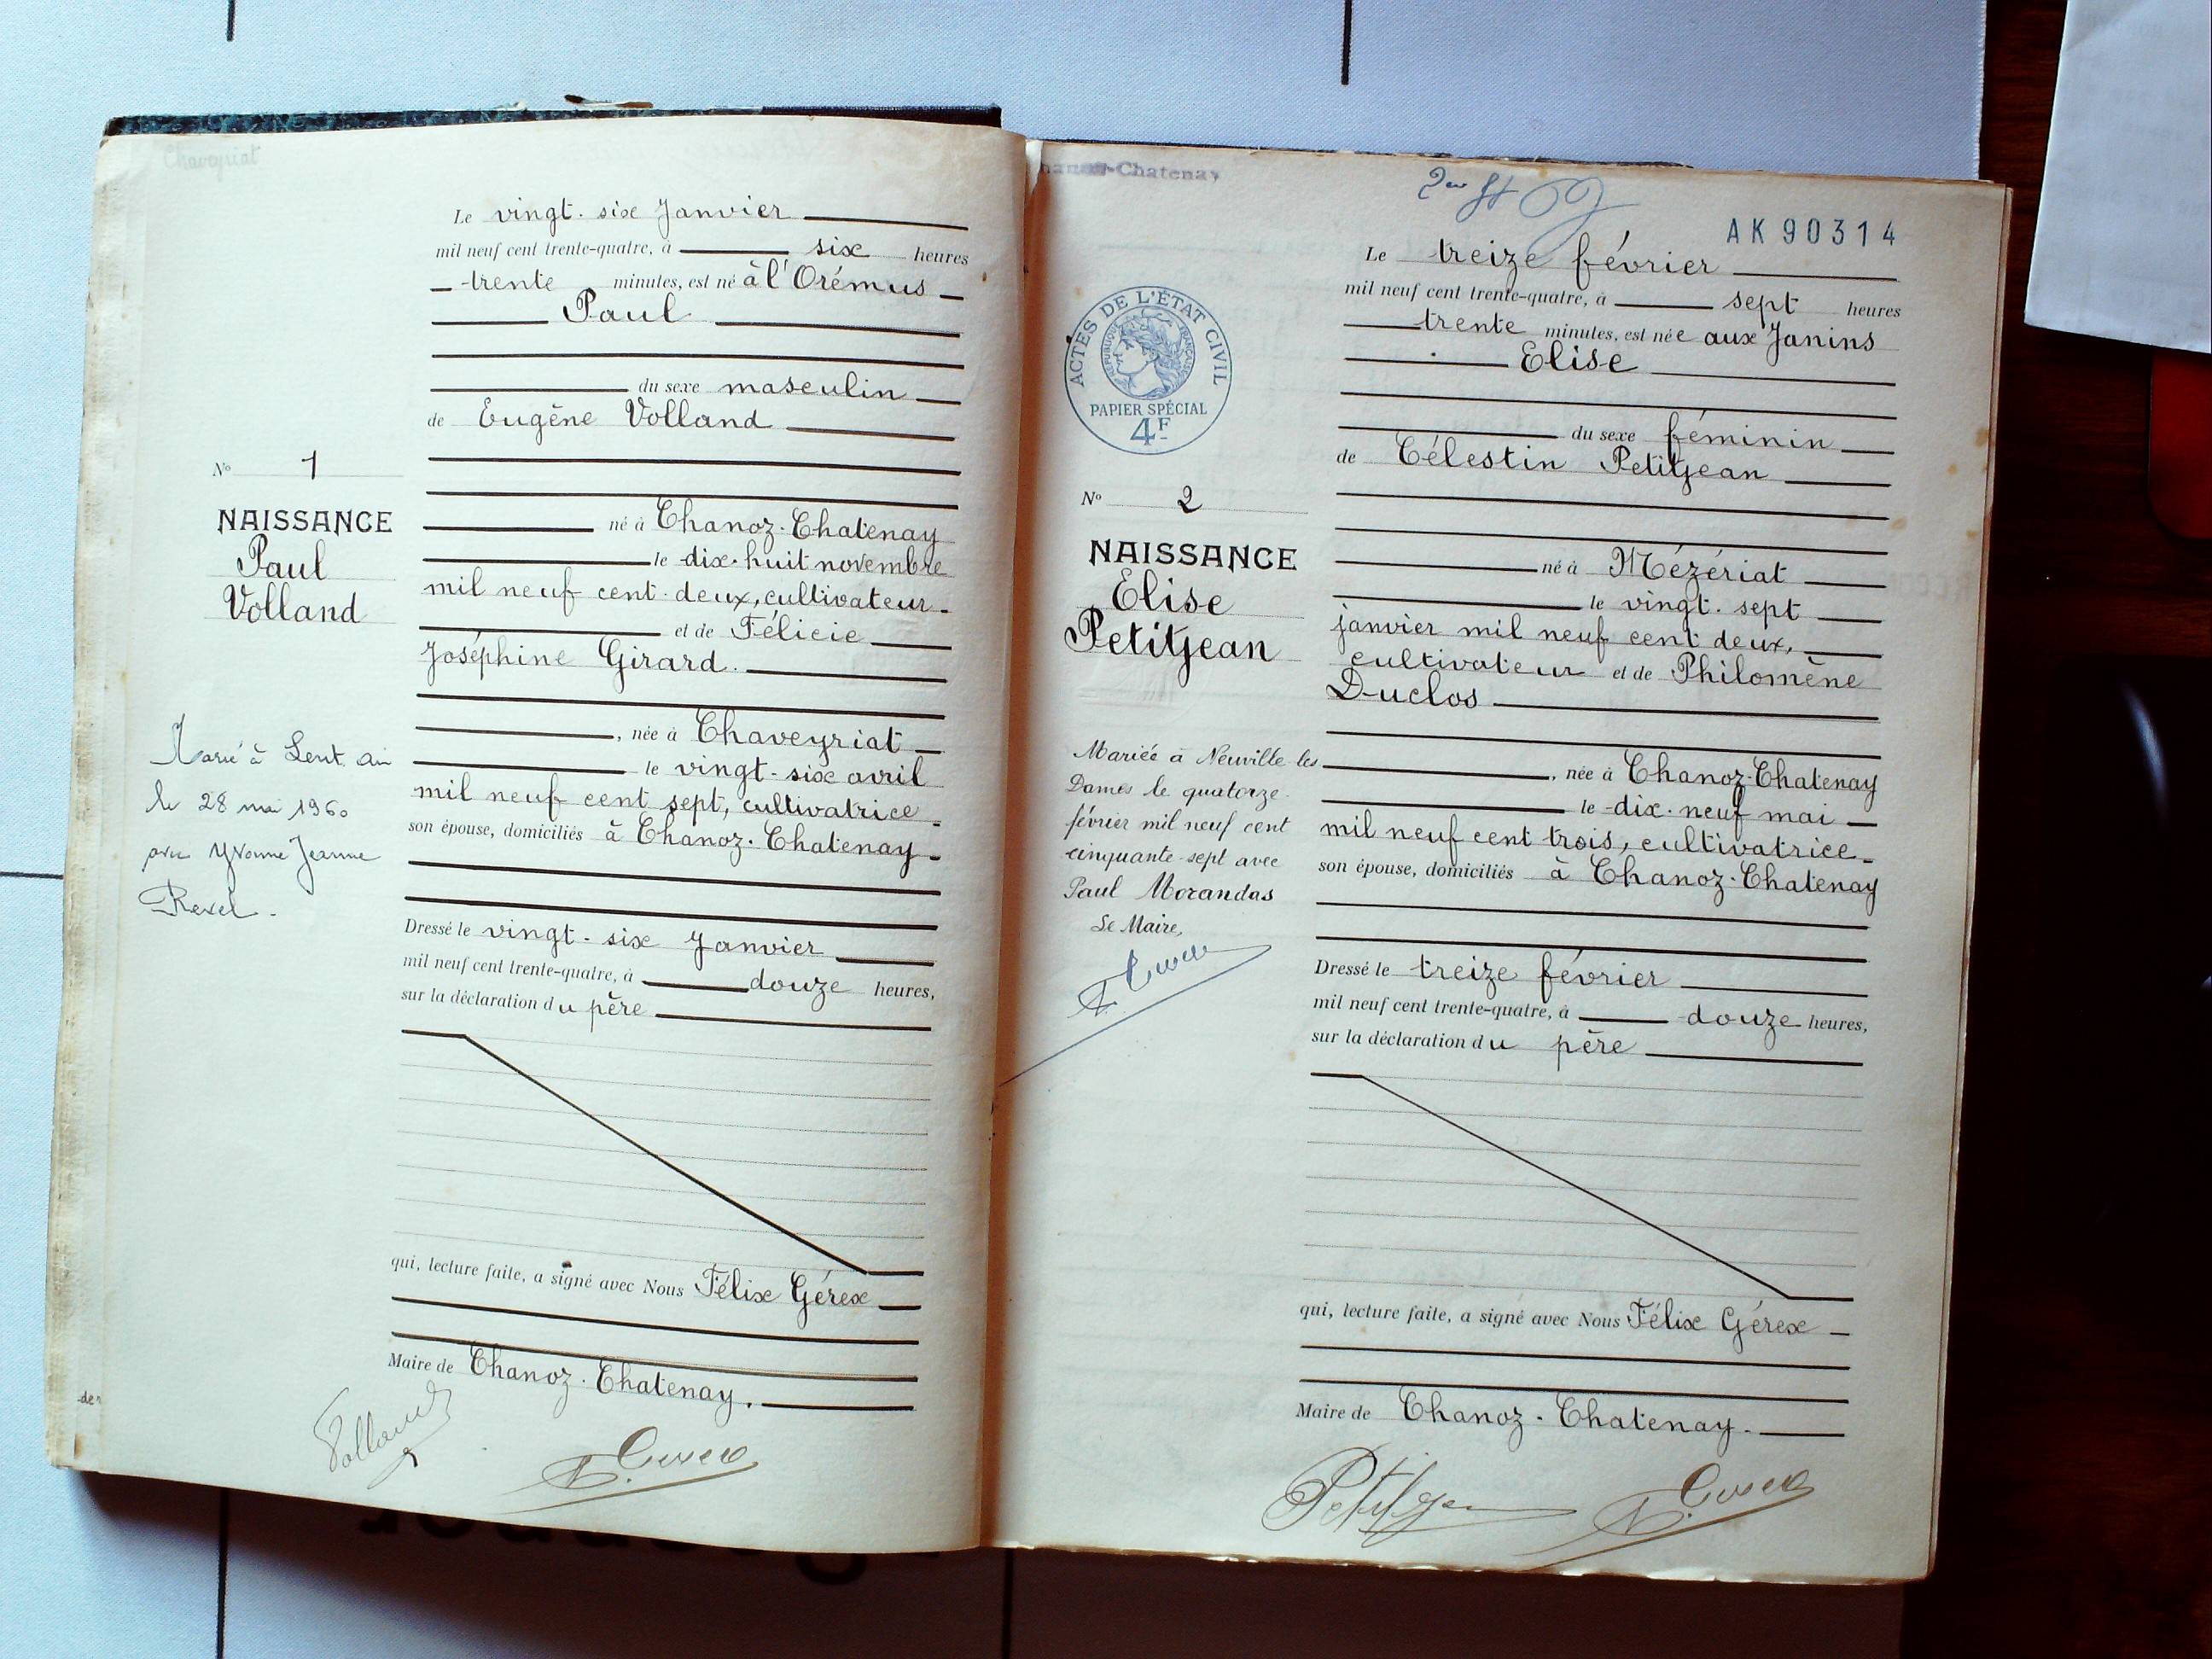 Le vingt-six Janvier
mil neuf cent trente-quatre, à six heures
trente minutes, est né à l'Orémus
Paul
du sexe masculin
de Eugène Volland
né à Chanoz-Chatenay
le dix-huit novembre
mil neuf cent deux, cultivateur
et de Félicie
Joséphine Girard.
, née à Chaveyriat
le vingt-six avril
mil neuf cent sept, cultivatrice
son épouse, domiciliés à Chanoz-Chatenay
Dressé le vingt-six Janvier
mil neuf cent trente-quatre, à douze heures,
sur la déclaration du père
qui, lecture faite, a signé avec Nous Félix Gérex
Maire de Chanoz-Chatenay.
Volland
Nº 1
NAISSANCE
Paul
Volland
Marié à Lent Ain
le 28 mai 1960
avec Yvonne Jeanne
Revel.
Chaveyriat
-Chatenay
AK 90314
Le treize février
mil neuf cent trente-quatre, à sept heures
trente minutes, est née aux Janins
Elise
du sexe féminin
de Célestin Petitjean
né à Mézériat
le vingt-sept
janvier mil neuf cent deux,
cultivateur et de Philomène
Duclos
, née à Chanoz-Chatenay
le dix-neuf mai
mil neuf cent trois, cultivatrice
son épouse, domiciliés à Chanoz-Chatenay
Dressé le treize février
mil neuf cent trente-quatre, à douze heures,
sur la déclaration du père
qui, lecture faite, a signé avec Nous Félix Gérex
Maire de Chanoz-Chatenay.
Petitjean
ACTES DE L'ÉTAT CIVIL
RÉPUBLIQUE FRANÇAISE
PAPIER SPÉCIAL
4F
Nº 2
NAISSANCE
Elise
Petitjean
Mariée à Neuville les
Dames le quatorze
février mil neuf cent
cinquante-sept avec
Paul Morandas
Le Maire,